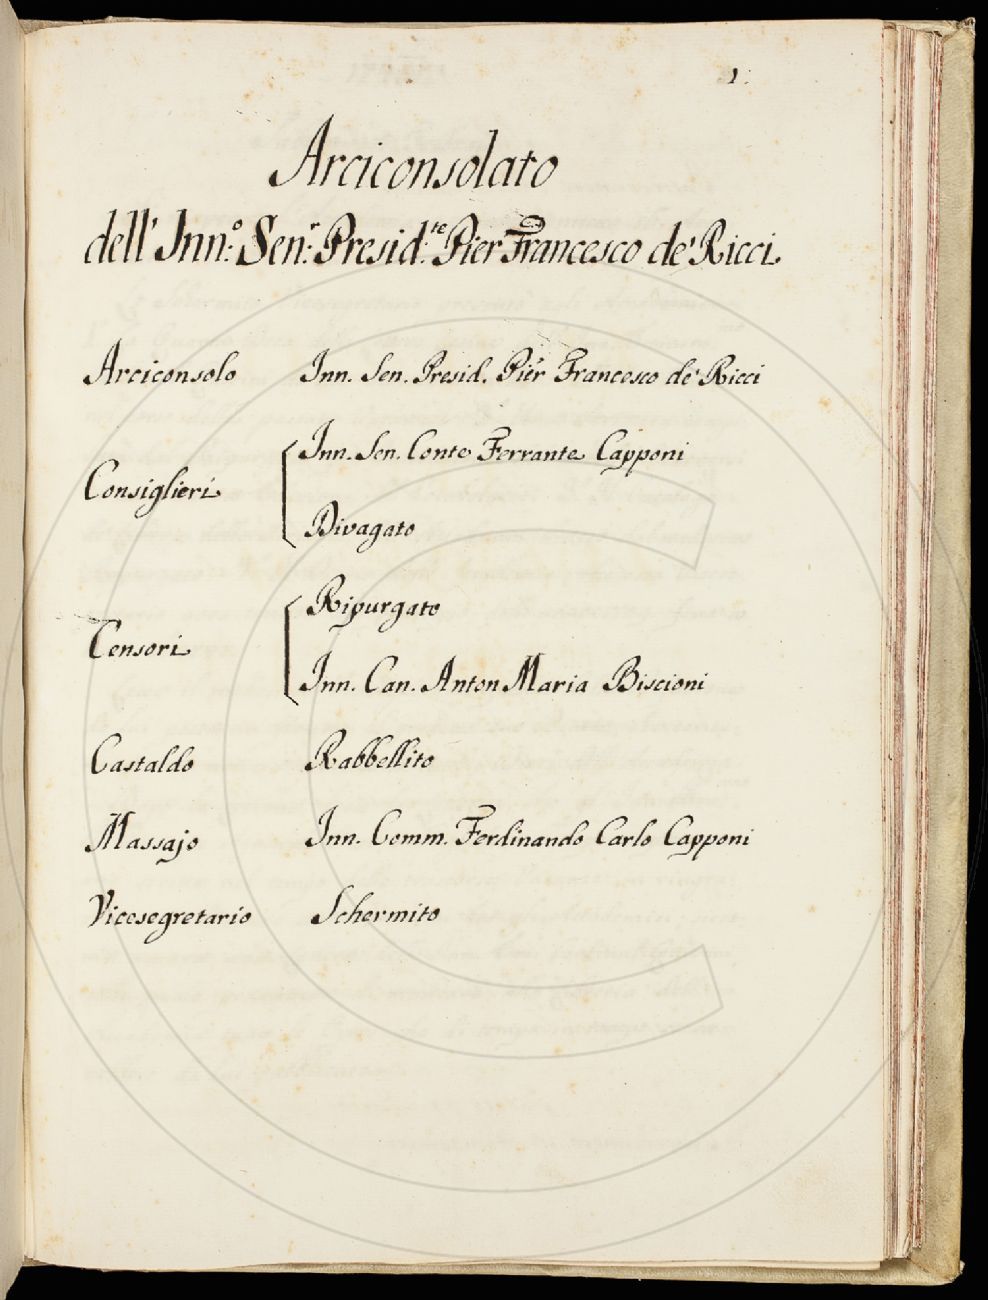 1.
Arciconsolato
dell' Inn.º Sen.r Presid.te Pier Francesco de' Ricci.
Arciconsolo Inn. Sen. Presid. Pier Francesco de' Ricci
Inn. Sen. Conte Ferrante Capponi
Consiglieri
Divagato
Ripurgato
Censori
Inn. Can. Anton Maria Biscioni
Castaldo Rabbellito
Massajo Inn. Comm. Ferdinando Carlo Capponi
Vicesegretario Schermito